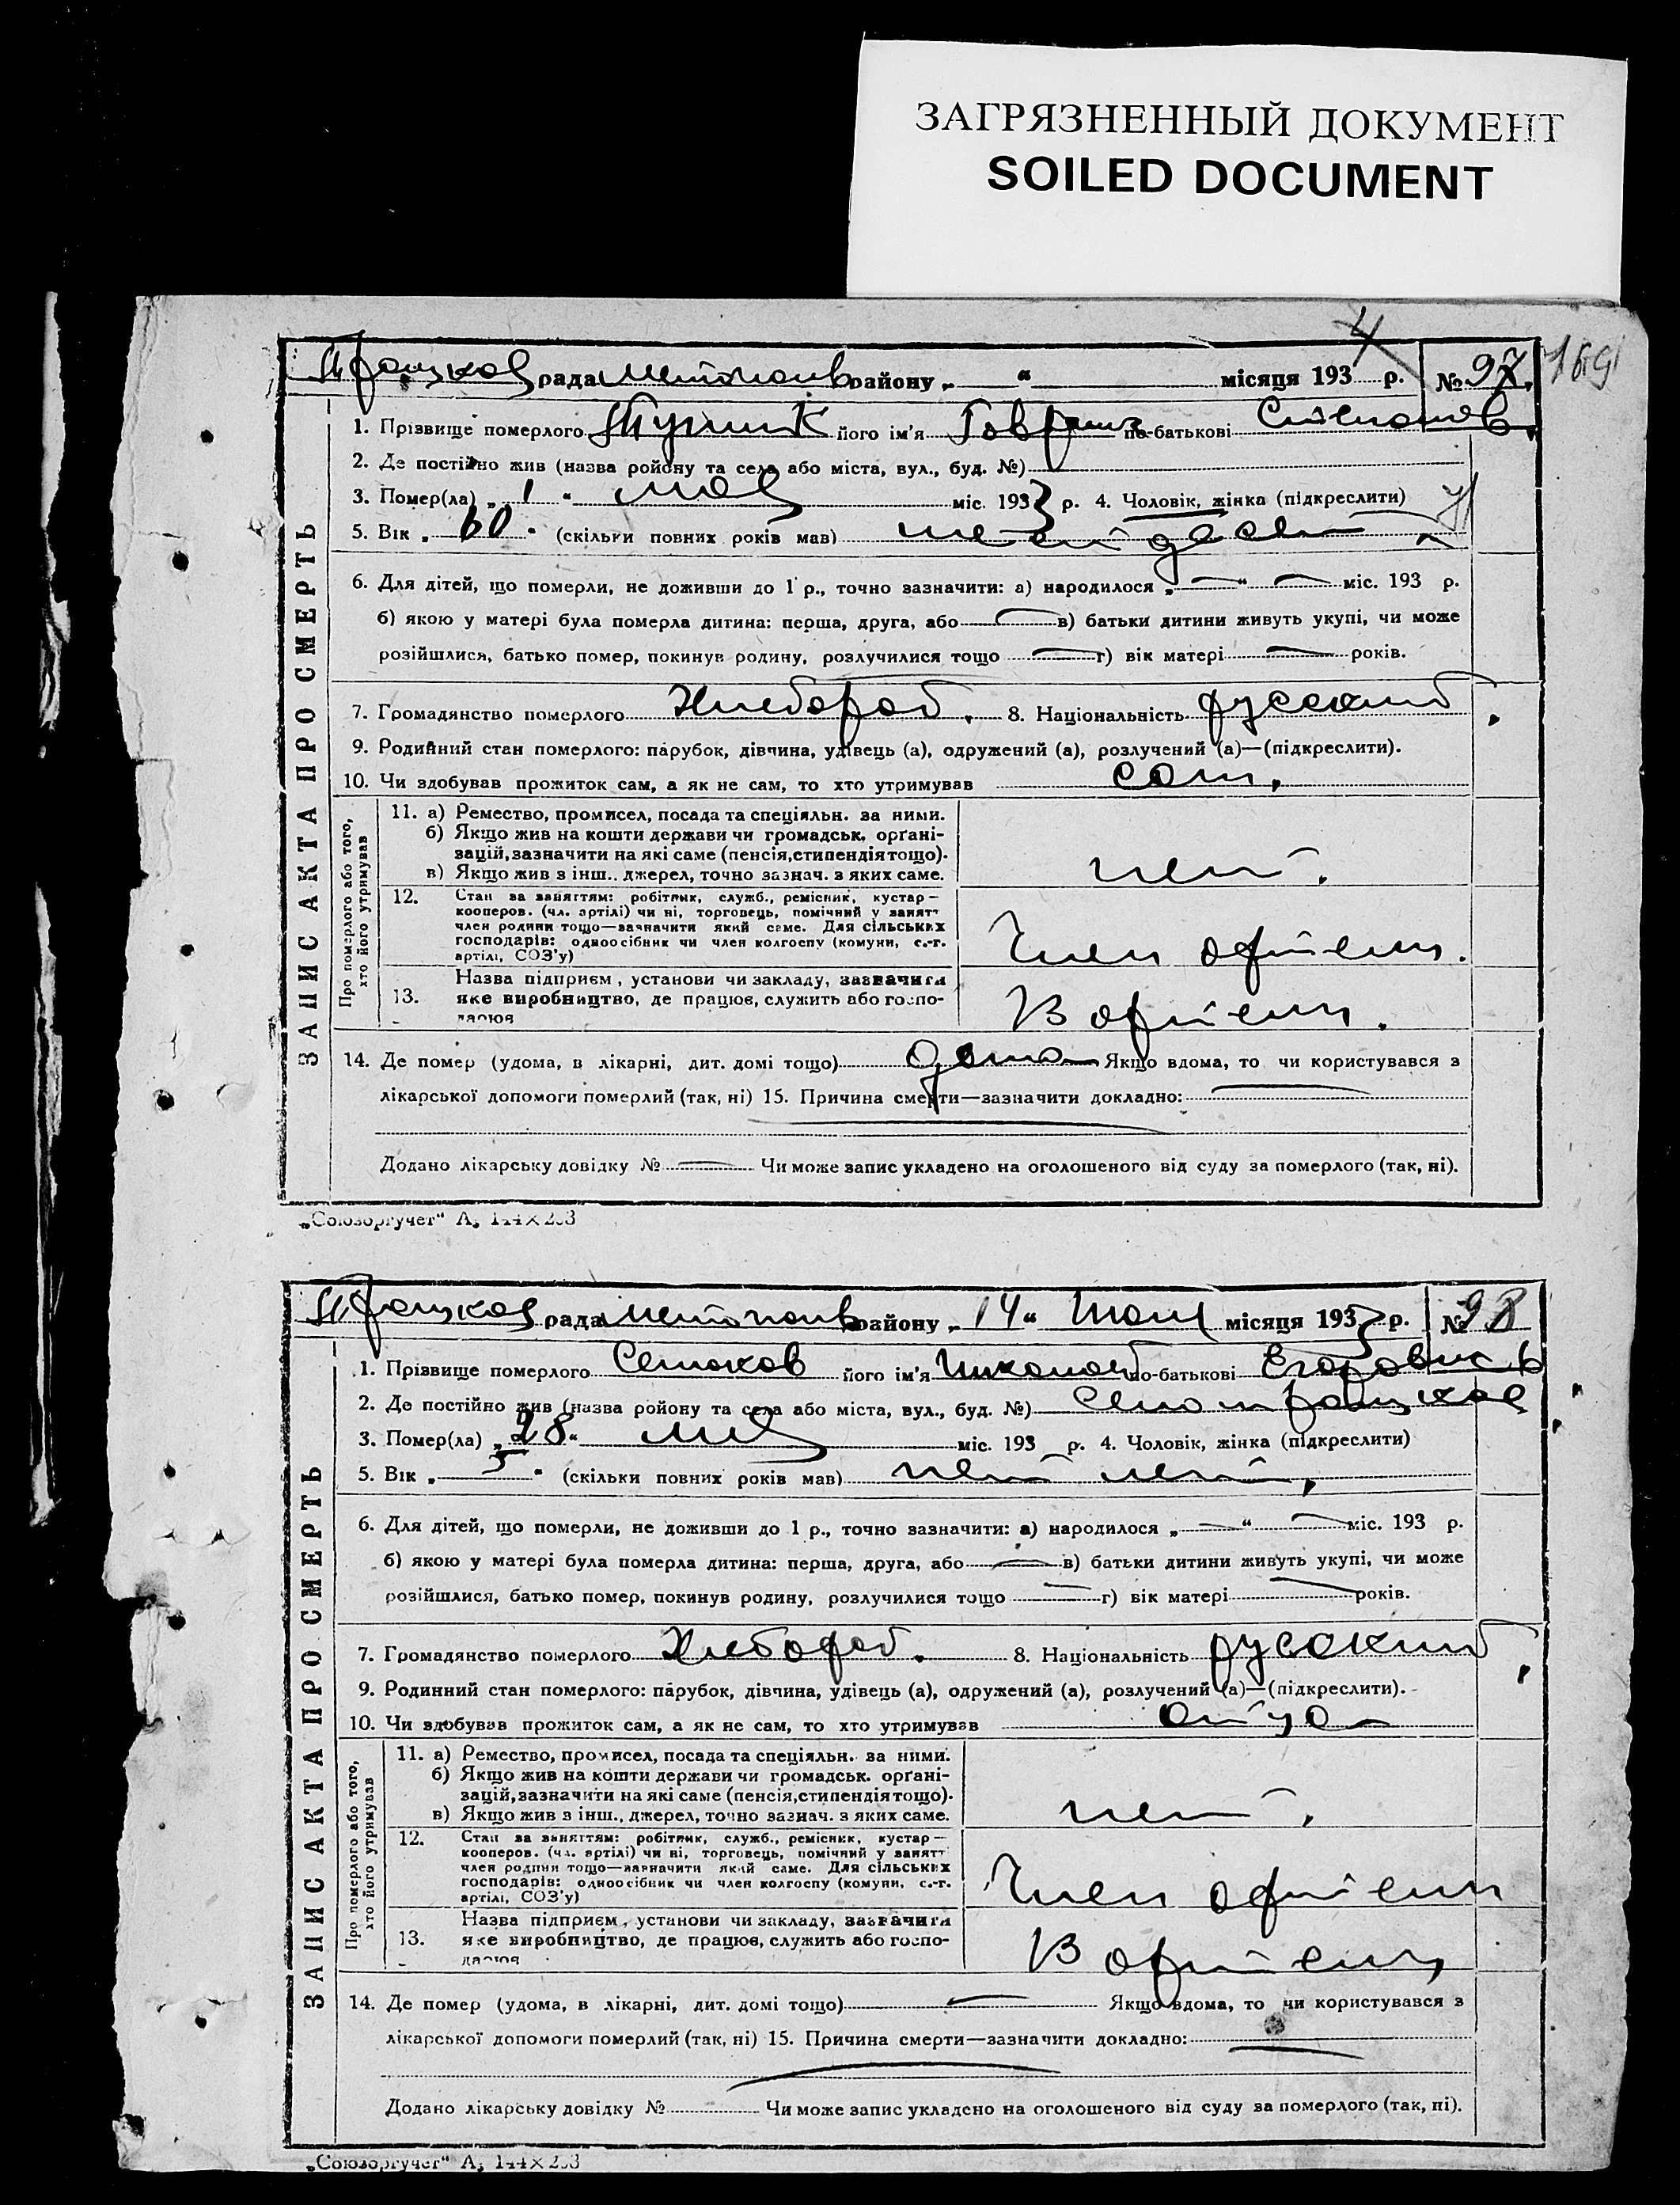 ЗАГРЯЗНЕННЫЙ ДОКУМЕНТ
SOILED DOCUMENT
169
рада района „ “ місяця 193 р. № 97.
1. Прізвище померлого його ім'я по-батькові
2. Де постійно жив (назва ройону та села або міста, вул., буд. №)
3. Помер(ла) „ 1 “ мая міс. 1933 р. 4. Чоловік, жінка (підкреслити)
5. Вік „ 60 “ (скільки повних років мав)
6. Для дітей, що померли, не доживши до 1 р., точно зазначити: а) народилося „ “ міс. 193 р.
б) якою у матері була померла дитина: перша, друга, або в) батьки дитини живуть укупі, чи може
розійшлися, батько помер, покинув родину, розлучилися тощо г) вік матері років.
7. Громадянство померлого Хлебороб. 8. Національність русский
9. Родинний стан померлого: парубок, дівчина, удівець (а), одружений (а), розлучений (а)—(підкреслити).
10. Чи здобував прожиток сам, а як не сам, то хто утримував сам.
ЗАПИС АКТА ПРО СМЕРТЬ
Про померлого або того, хто його утримував
11. а) Ремество, промисел, посада та спеціяльн. за ними.
б) Якщо жив на кошти держави чи громадськ. орґані-
зацій, зазначити на які саме (пенсія, стипендія тощо).
в) Якщо жив з інш.. джерел, точно зазнач. з яких саме.
нет.
12. Стан за заняттям: робітник, служб., ремісник, кустар—
кооперов. (чл. артілі) чи ні, торговець, помічний у занятт
член родини тощо—зазначити який саме. Для сільських
господарів: одноосібник чи член колгоспу (комуни, с.-г.
артілі, СОЗ'у)
Член артели.
13. Назва підприєм, установи чи закладу, зазначити
яке виробництво, де працює, служить або госпо-
дарює
В артели.
14. Де помер (удома, в лікарні, дит. домі тощо) дома Якщо вдома, то чи користувався з
лікарської допомоги померлий (так, ні) 15. Причина смерти—зазначити докладно:
Додано лікарську довідку № Чи може запис укладено на оголошеного від суду за померлого (так, ні).
„Союзоргучет“ А5 144×203
рада району „ 14 “ місяця 1933 р. № 98
1. Прізвище померлого його ім'я Николай по-батькові Егорович
2. Де постійно жив (назва ройону та села або міста, вул., буд. №) Село
3. Помер(ла) „ 28 “ мая міс. 193 р. 4. Чоловік, жінка (підкреслити)
5. Вік „ 5 “ (скільки повних років мав) лет
6. Для дітей, що померли, не доживши до 1 р., точно зазначити: а) народилося „ “ міс. 193 р.
б) якою у матері була померла дитина: перша, друга, або в) батьки дитини живуть укупі, чи може
розійшлися, батько помер, покинув родину, розлучилися тощо г) вік матері років.
7. Громадянство померлого Хлебороб. 8. Національність русский
9. Родинний стан померлого: парубок, дівчина, удівець (а), одружений (а), розлучений (а)—(підкреслити).
10. Чи здобував прожиток сам, а як не сам, то хто утримував
ЗАПИС АКТА ПРО СМЕРТЬ
Про померлого або того, хто його утримував
11. а) Ремество, промисел, посада та спеціяльн. за ними.
б) Якщо жив на кошти держави чи громадськ. орґані-
зацій, зазначити на які саме (пенсія, стипендія тощо).
в) Якщо жив з інш., джерел, точно зазнач. з яких саме.
нет.
12. Стан за заняттям: робітник, служб., ремісник, кустар—
кооперов. (чл. артілі) чи ні, торговець, помічний у занятт
член родини тощо—зазначити який саме. Для сільських
господарів: одноосібник чи член колгоспу (комуни, с.-г.
артілі, СОЗ'у)
Член артели
13. Назва підприєм, установи чи закладу, зазначити
яке виробництво, де працює, служить або госпо-
дарює
В артели
14. Де помер (удома, в лікарні, дит. домі тощо) Якщо вдома, то чи користувався з
лікарської допомоги померлий (так, ні) 15. Причина смерти—зазначити докладно:
Додано лікарську довідку № Чи може запис укладено на оголошеного від суду за померлого (так, ні).
„Союзоргучет“ А5 144×203